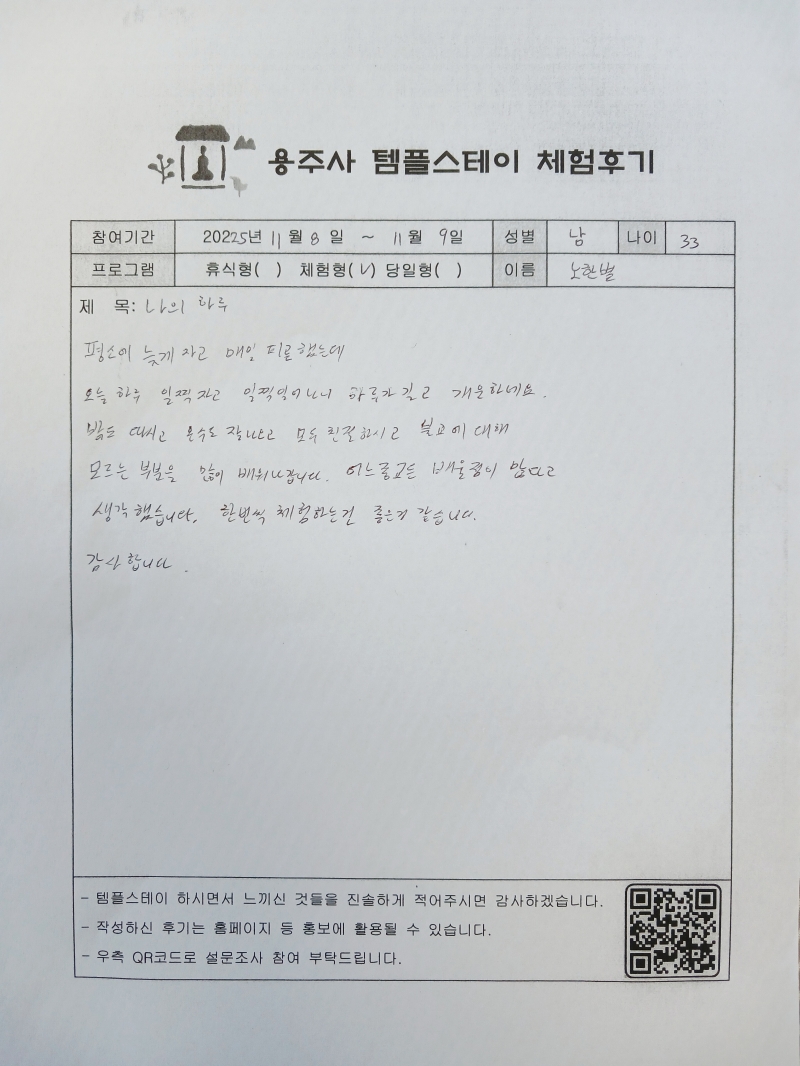 용주사 템플스테이 체험후기
참여기간 20225년 11월 8일 ~ 11월 9일 성별 남 나이 33
프로그램 휴식형( ) 체험형(V) 당일형( ) 이름 노한별
제 목: 나의 하루
평소에 늦게 자고 매일 피곤했는데
오늘 하루 일찍 자고 일찍일어나니 하루가 길고 개운하네요.
밥도 맛있고 온수도 잘나오고 모두 친절하시고 불교에 대해
모르는 부분을 많이 배워나갑니다. 어느종교든 배울점이 많다고
생각했습니다. 한번씩 체험하는건 좋은거 같습니다.
감사합니다.
- 템플스테이 하시면서 느끼신 것들을 진솔하게 적어주시면 감사하겠습니다.
- 작성하신 후기는 홈페이지 등 홍보에 활용될 수 있습니다.
- 우측 QR코드로 설문조사 참여 부탁드립니다.